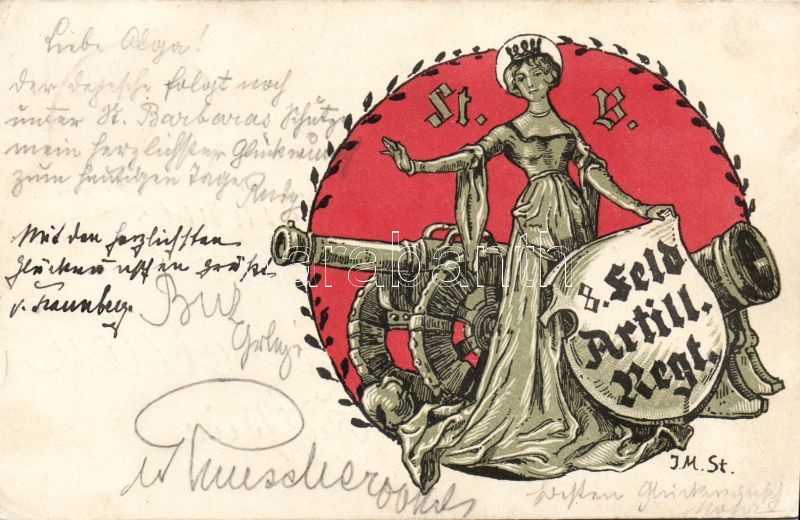 Liebe Olga!
der depesche folgt noch
unter St. Barbaras Schutze
mein herzlichster Glückwun
zum heutigen Tage
St. B.
Mit den herzlichsten
Glückwünschen grüßt
v.
8. Feld
Artill.
Regt.
J.M. St.
besten Glückwunsch
darabanth